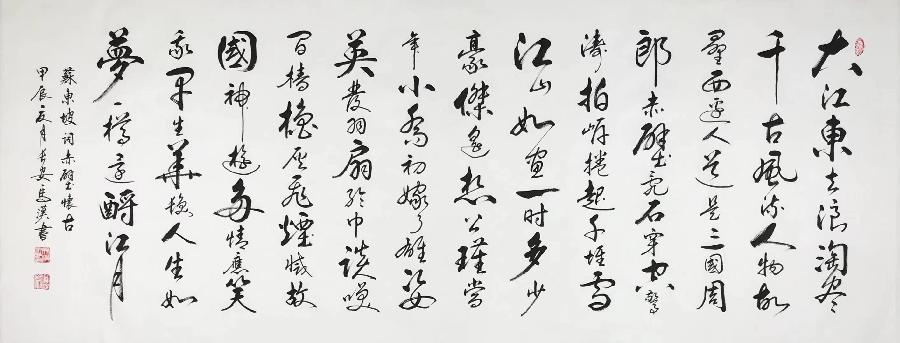 大江東去浪淘盡
千古風流人物故
壘西邊人道是三國周
郎赤壁亂石穿空驚
濤拍岸捲起千堆雪
江山如畫一时多少
豪傑遙想公瑾當
年小喬初嫁了雄姿
英發羽扇綸巾談笑
間檣櫓灰飛煙滅故
國神遊多情應笑
我早生華髮人生如
夢一樽還酹江月
蘇東坡詞赤壁懷古
甲辰夏月長安馬漢書